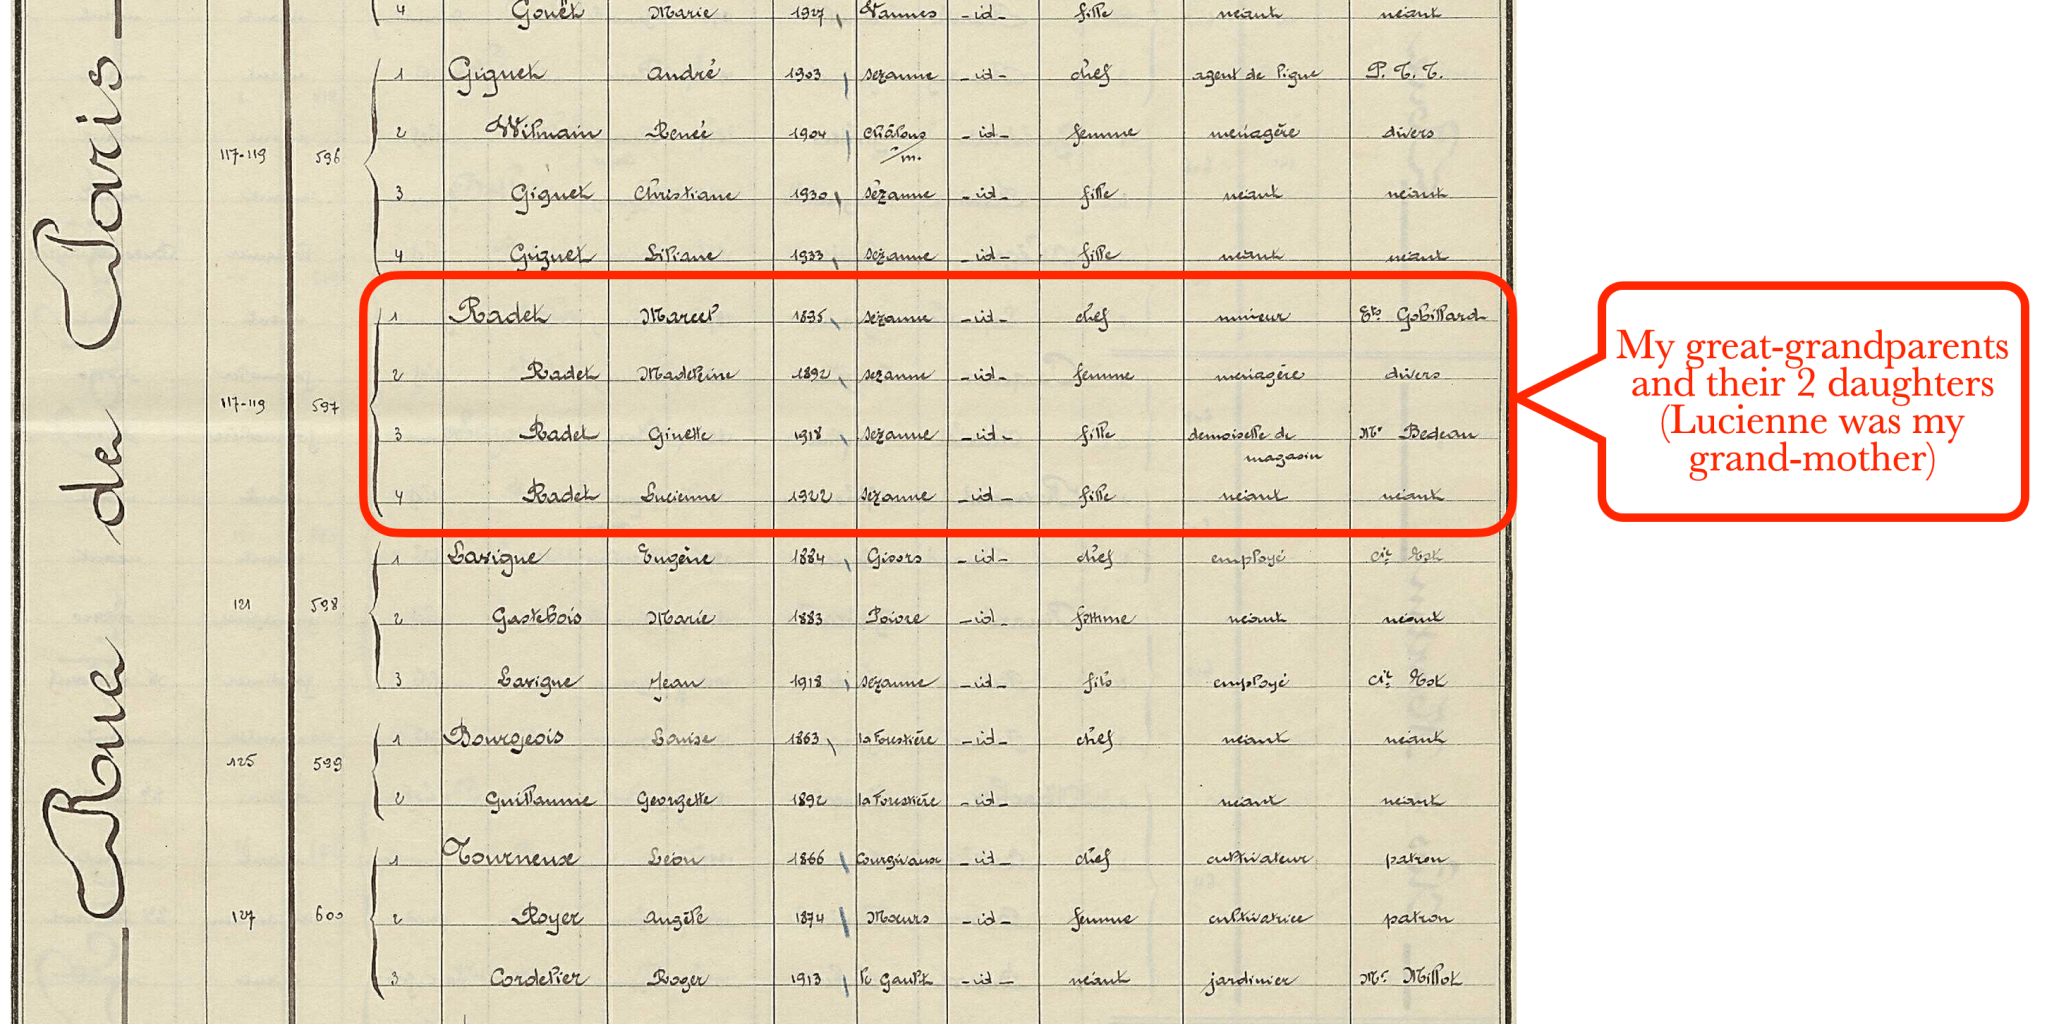 4 Gouët Marie 1927 Vannes -id- fille néant néant
1 Giguet André 1903 Sézanne -id- chef agent de ligne P. T. T.
2 Wilmain Renée 1904 Châlons -id- femme ménagère divers
/m.
117-119 596
3 Giguet Christiane 1930 Sézanne -id- fille néant néant
4 Giguet Liliane 1933 Sézanne -id- fille néant néant
1 Radet Marcel 1895 Sézanne -id- chef mineur Ets Gobillard
2 Radet Madeleine 1892 Sézanne -id- femme ménagère divers
117-119 597
3 Radet Ginette 1918 Sézanne -id- fille demoiselle de Mr Bedeau
magasin
4 Radet Lucienne 1922 Sézanne -id- fille néant néant
1 Lavigne Eugène 1884 Gisors -id- chef employé Cie Est
121 598
2 Gastebois Marie 1883 Poivre -id- femme néant néant
3 Lavigne Jean 1918 Sézanne -id- fils employé Cie Est
1 Bourgeois Louise 1863 la Forestière -id- chef néant néant
125 599
2 Guillaume Georgette 1892 la Forestière -id- néant néant
1 Tourneux Léon 1866 Courgivaux -id- chef cultivateur patron
127 600 2 Royer Angèle 1874 Mœurs -id- femme cultivatrice patron
3 Cordelier Roger 1913 le Gault -id- néant jardinier Mr Millot
Rue de Paris
My great-grandparents
and their 2 daughters
(Lucienne was my
grand-mother)